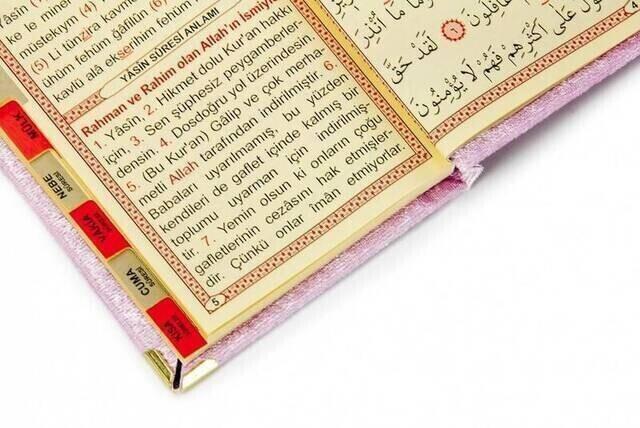 ke le mine
müstekıym (4)
(5) Li tünzira kavmen
ühüm fehüm ğâfilûn (6)
kavlü alâ ekserihim fehüm
YÂSÎN SÛRESİ ANLAMI
Rahman ve Rahim olan Allah'ın ismiyle
1. Yâsîn, 2. Hikmet dolu Kur'an hakkı
için, 3. Sen şüphesiz peygamberler-
densin. 4. Dosdoğru yol üzerindesin.
5. (Bu Kur'an) Gâlip ve çok merha-
metli Allah tarafından indirilmiştir. 6.
Babaları uyarılmamış, bu yüzden
kendileri de gaflet içinde kalmış bir
toplumu uyarman için indirilmiş-
tir. 7. Yemin olsun ki onların çoğu
gafletlerinin cezasını hak etmişler-
dir. Çünkü onlar îmân etmiyorlar.
5
مَا أُنْذِرَ
غَافِلُونَ ٦ لَقَدْ حَقَّ
الْقَوْلُ عَلَى أَكْثَرِهِمْ فَهُمْ لَا يُؤْمِنُونَ
MÜLK
NEBE
SÛRESİ
VÂKIA
SÛRESİ
CUMA
SÛRESİ
KISA
SÛRELER